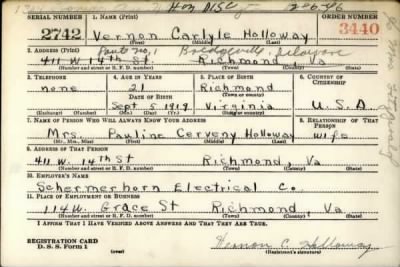 Hon Disc 12-6-46
SERIAL NUMBER 1. NAME (Print) ORDER NUMBER
2742 Vernon Carlyle Holloway 3440
(First) (Middle) (Last)
2. ADDRESS (Print) Route No. 1
411 W. 14th St. Richmond, Va
(Number and street or R. F. D. number) (Town) (County) (State)
3. TELEPHONE 4. AGE IN YEARS 5. PLACE OF BIRTH 6. COUNTRY OF CITIZENSHIP
none 21 Richmond
DATE OF BIRTH (Town or county)
Sept 5 1919 Virginia U.S.A
(Exchange) (Number) (Mo.) (Day) (Yr.) (State or country)
7. NAME OF PERSON WHO WILL ALWAYS KNOW YOUR ADDRESS 8. RELATIONSHIP OF THAT PERSON
Mrs. Pauline Cerveny Holloway wife
(Mr., Mrs., Miss) (First) (Middle) (Last)
9. ADDRESS OF THAT PERSON
411 W. 14th St Richmond, Va
(Number and street or R. F. D. number) (Town) (County) (State)
10. EMPLOYER'S NAME
Schermerhorn Electrical Co.
11. PLACE OF EMPLOYMENT OR BUSINESS
114 W. Grace St Richmond, Va
(Number and street or R. F. D. number) (Town) (County) (State)
I AFFIRM THAT I HAVE VERIFIED ABOVE ANSWERS AND THAT THEY ARE TRUE.
REGISTRATION CARD
D. S. S. Form 1 (over) Vernon C. Holloway
(Registrant's signature)